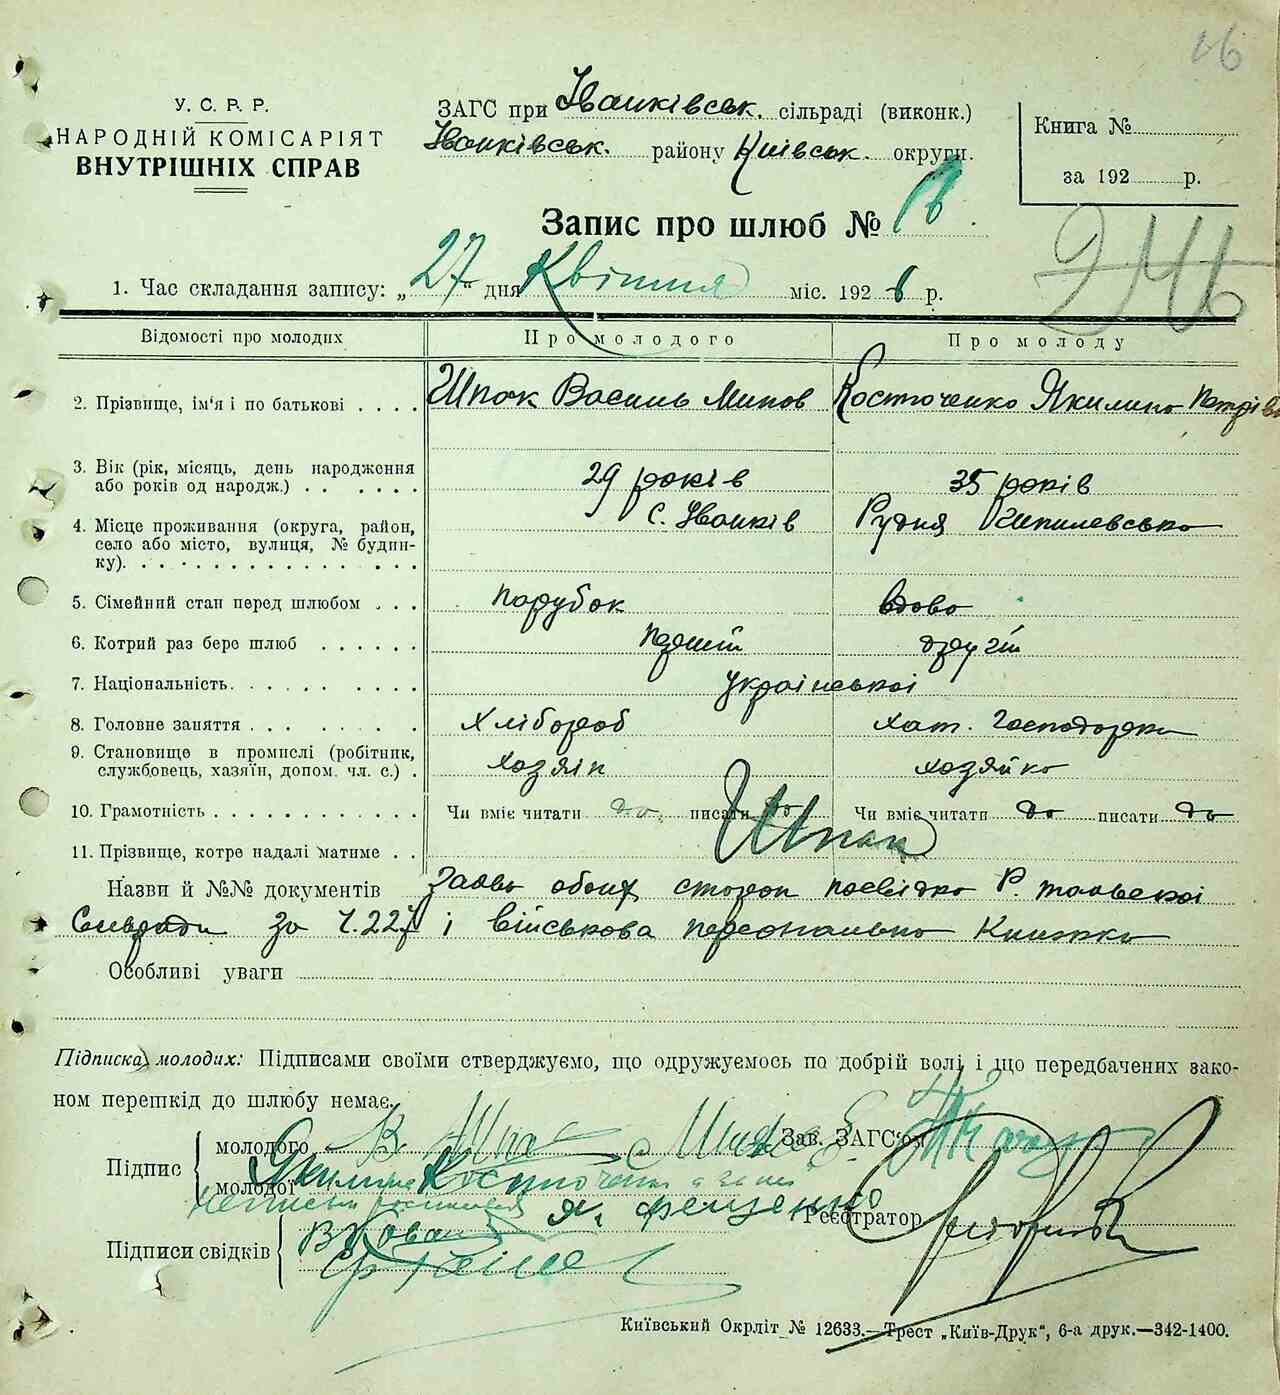 У. С. Р. Р.
НАРОДНІЙ КОМІСАРІЯТ
ВНУТРІШНІХ СПРАВ
ЗАГС при Іванківськ. сільраді (виконк.)
Іванківськ. району Київськ. округи.
Книга №
за 192 р.
Запис про шлюб №
246
1. Час складання запису: „27“ дня Квітня міс. 192 р.
Відомості про молодих Про молодого Про молоду
2. Прізвище, ім'я і по батькові Шпак Василь Минов Косточенко Якилина Петрівн
3. Вік (рік, місяць, день народження 29 років 35 років
або років од народж.)
4. Місце проживання (округа, район, С. Іванків Рудня
село або місто, вулиця, № будин-
ку).
5. Сімейний стан перед шлюбом парубок вдова
6. Котрий раз бере шлюб перший другій
7. Національність української
8. Головне заняття Хлібороб хат. Господарка
9. Становище в промислі (робітник, хозяін хозяйка
службовець, хазяїн, допом. чл. с.)
10. Грамотність Чи вміє читати да, писати да Чи вміє читати да писати да
11. Прізвище, котре надалі матиме Шпак
Назви й №№ документів Заява обоих сторон посвідка Р.
Сільради за ч. 227 і військова персональна Книжка
Особливі уваги
Підписка молодих: Підписами своїми стверджуємо, що одружуємось по добрій волі і що передбачених зако-
ном перешкід до шлюбу немає.
Підпис
молодого В. Шпак Зав. ЗАГС'ом
молодої Якилина Косточенко
Я. Фещенко Реєстратор
Підписи свідків
Київський Окрліт № 12633.—Трест „Київ-Друк“, 6-а друк.—342-1400.